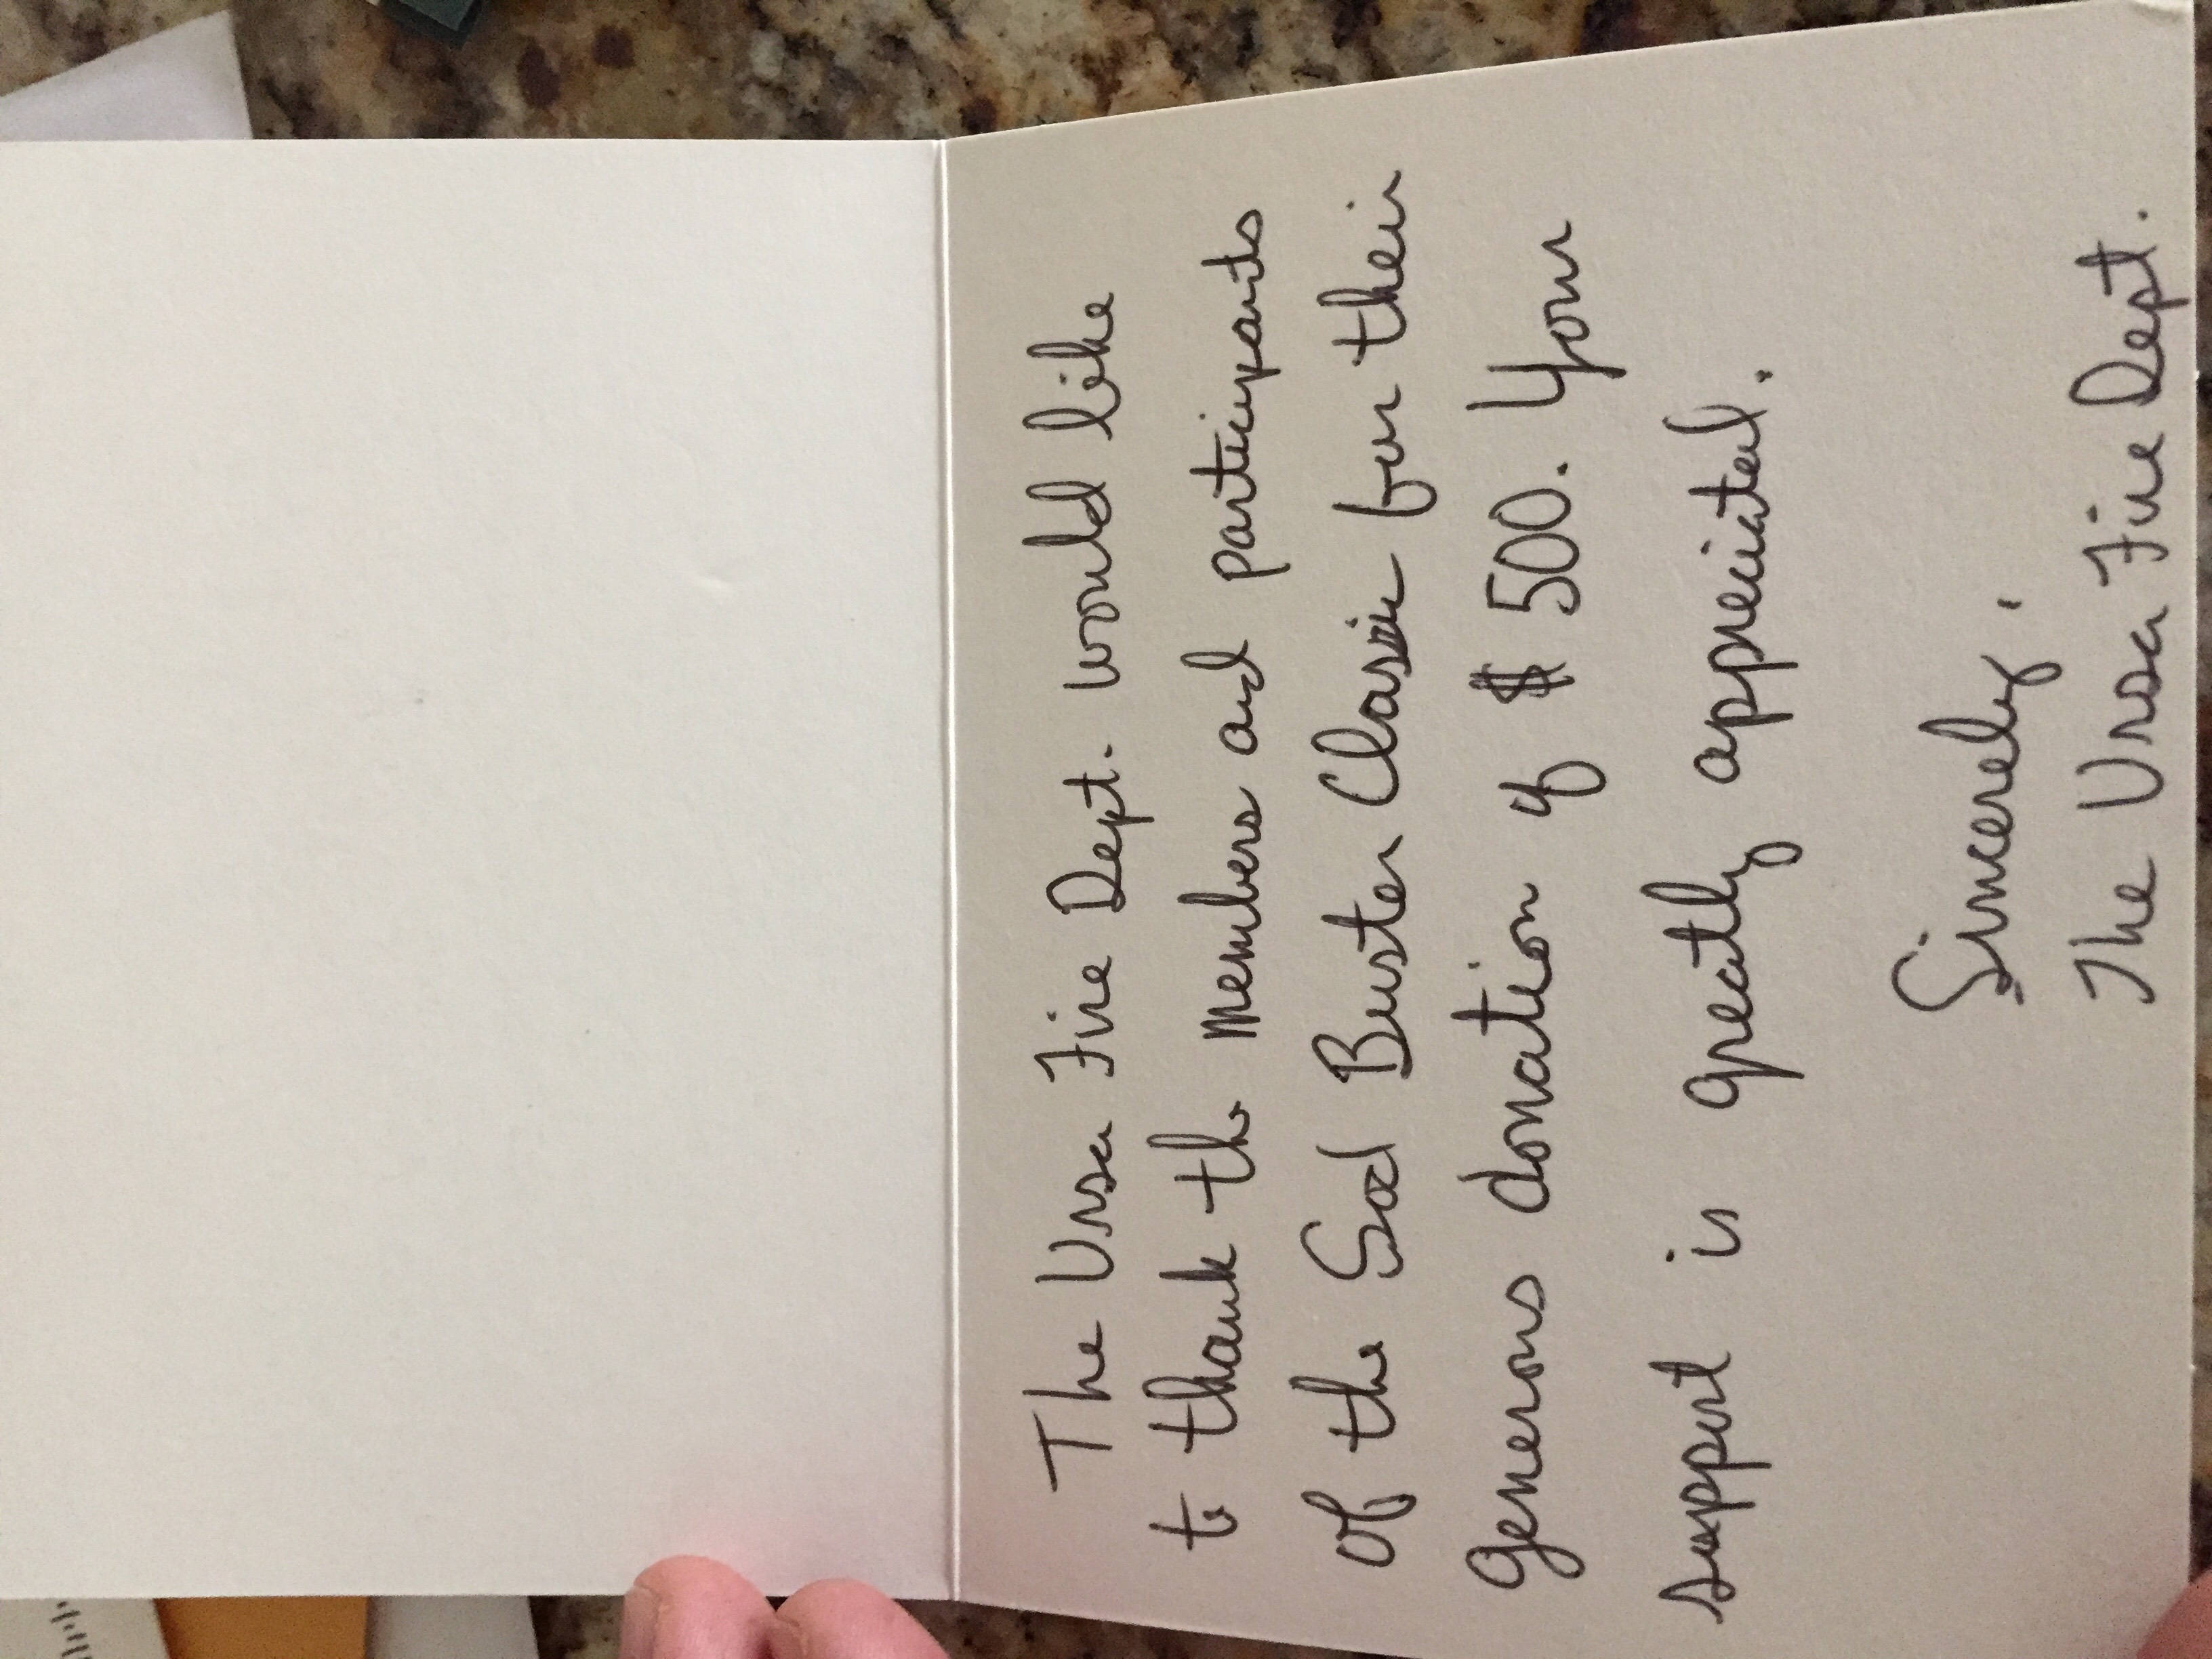 The Ursa Fire Dept. would like
to thank the members and participants
of the Sod Buster Classic for their
generous donation of $500. Your
support is greatly appreciated.
Sincerely,
The Ursa Fire Dept.